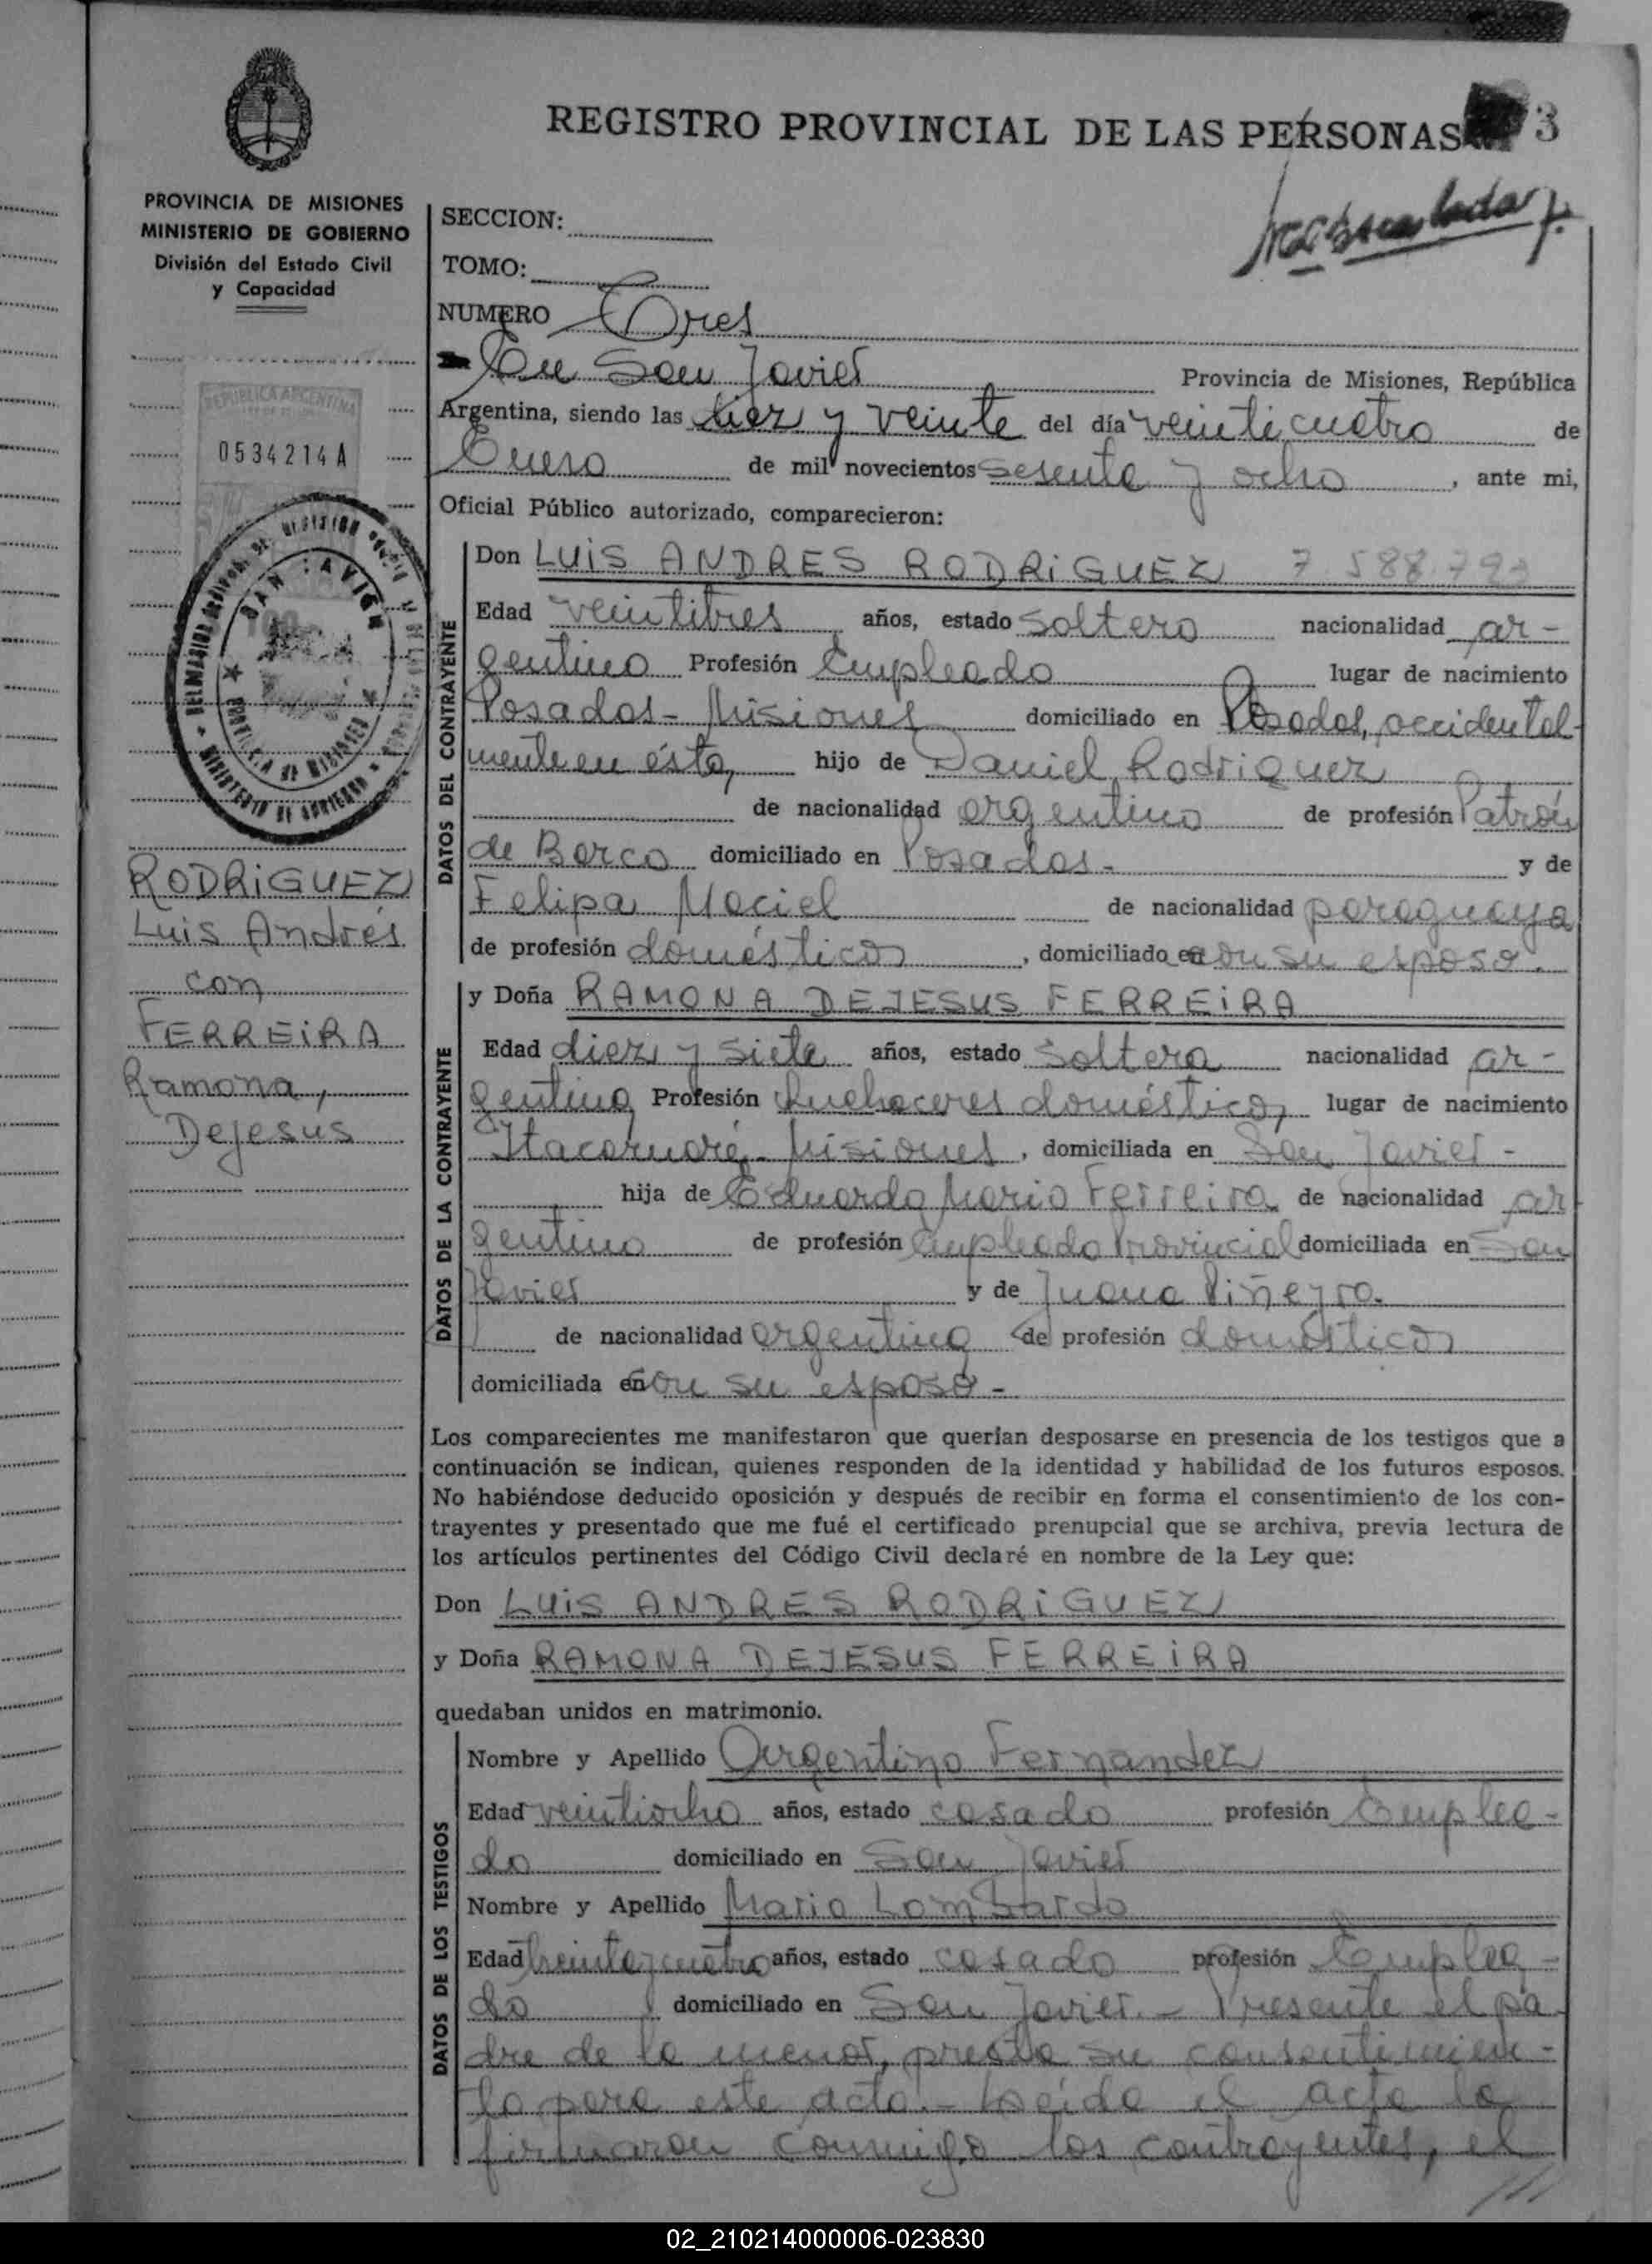 REGISTRO PROVINCIAL DE LAS PERSONAS 3
PROVINCIA DE MISIONES
MINISTERIO DE GOBIERNO
División del Estado Civil
y Capacidad
REPUBLICA ARGENTINA
0534214A
SAN JAVIER
RODRIGUEZ
Luis Andrés
con
FERREIRA
Ramona,
Dejesus
SECCION:
TOMO:
NUMERO Tres
En San Javier Provincia de Misiones, República
Argentina, siendo las diez y veinte del día veinticuatro de
Enero de mil novecientos sesenta y ocho, ante mi,
Oficial Público autorizado, comparecieron:
DATOS DEL CONTRAYENTE
Don LUIS ANDRES RODRIGUEZ 7 588.793
Edad veintitres años, estado soltero nacionalidad ar-
gentino Profesión Empleado lugar de nacimiento
Posadas - Misiones domiciliado en Posadas, occidental-
mente en ésta, hijo de Daniel Rodriguez
de nacionalidad argentino de profesión Patrón
de Barco domiciliado en Posadas - y de
Felipa Maciel de nacionalidad paraguaya
de profesión doméstica, domiciliado en con su esposo.
DATOS DE LA CONTRAYENTE
y Doña RAMONA DEJESUS FERREIRA
Edad diez y siete años, estado soltera nacionalidad ar-
gentina Profesión Quehaceres doméstico, lugar de nacimiento
Itacaruaré - Misiones, domiciliada en San Javier -
hija de Eduardo Mario Ferreira de nacionalidad ar
gentino de profesión Empleado Provincial domiciliada en San
Javier y de Juana Piñeyro.
de nacionalidad argentina de profesión doméstica
domiciliada en con su esposo -
Los comparecientes me manifestaron que querían desposarse en presencia de los testigos que a
continuación se indican, quienes responden de la identidad y habilidad de los futuros esposos.
No habiéndose deducido oposición y después de recibir en forma el consentimiento de los con-
trayentes y presentado que me fué el certificado prenupcial que se archiva, previa lectura de
los artículos pertinentes del Código Civil declaré en nombre de la Ley que:
Don LUIS ANDRES RODRIGUEZ
y Doña RAMONA DEJESUS FERREIRA
quedaban unidos en matrimonio.
DATOS DE LOS TESTIGOS
Nombre y Apellido Argentino Fernandez
Edad veintiocho años, estado casado profesión Emplea-
do domiciliado en San Javier
Nombre y Apellido Mario Lombardo
Edad treinta y cuatro años, estado casado profesión Emplea-
do domiciliado en San Javier. - Presente el pa
dre de la menor, presta su consentimien-
to para este acto. - Leída el acta la
firmaron conmigo los contrayentes, el
02_210214000006-023830